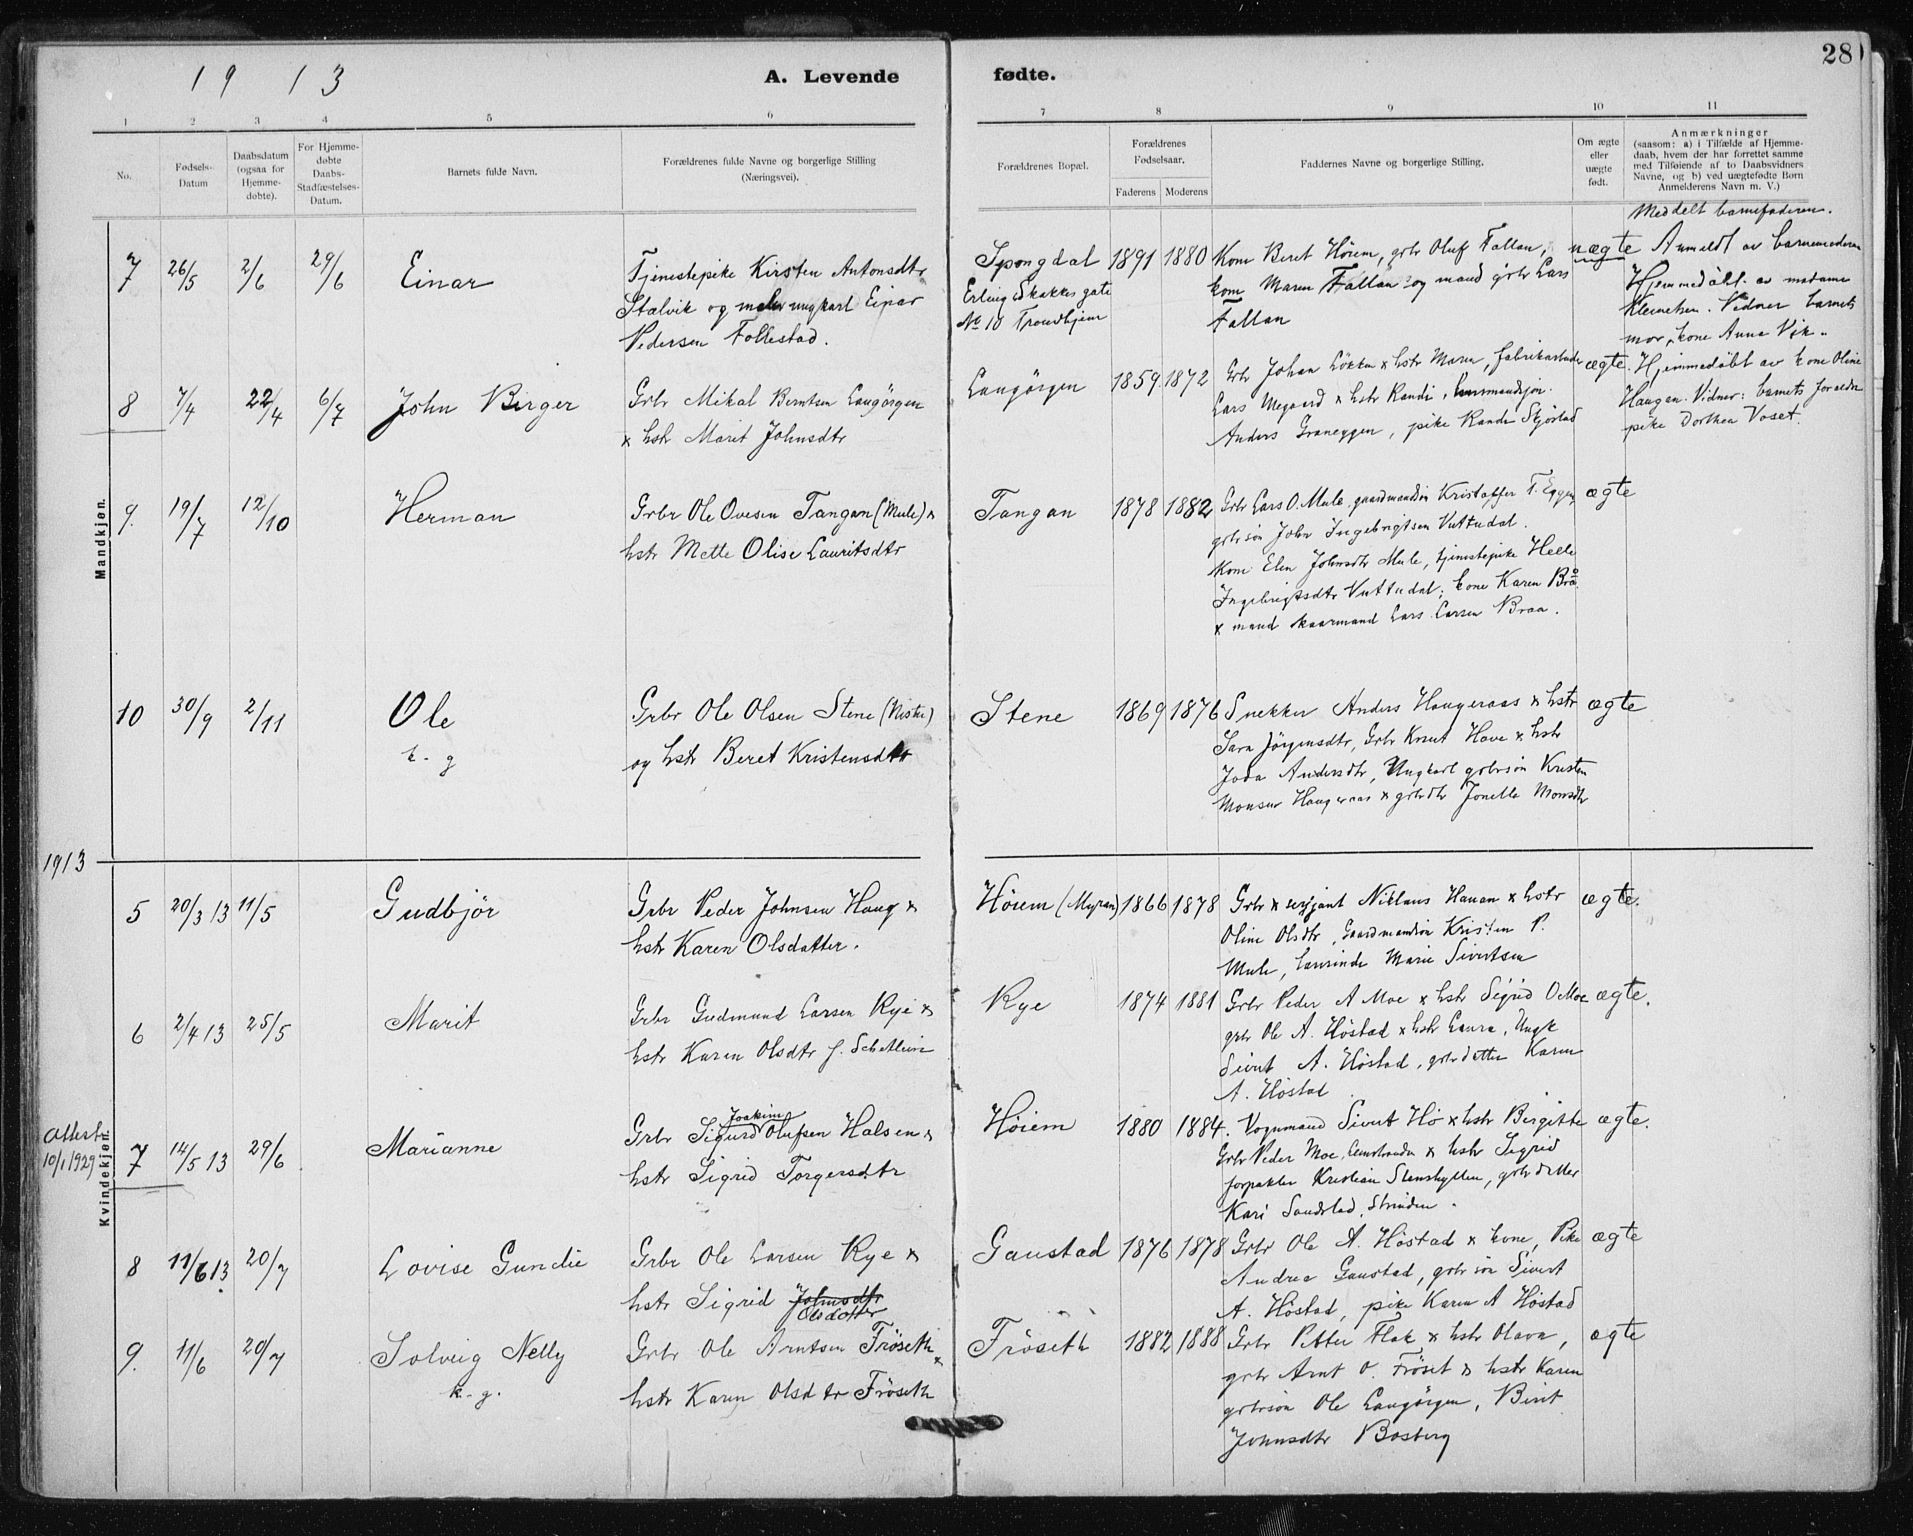 28
1913
A. Levende fødte.
1 2 3 4 5 6 7 8 9 10 11
No.
Fødsels-
Datum
Daabsdatum
(ogsaa for
Hjemme-
døbte).
For Hjemme-
døbte
Daabs-
Stadfæstelses-
Datum.
Barnets fulde Navn.
Forældrenes fulde Navne og borgerlige Stilling
(Næringsvei).
Forældrenes Bopæl.
Forældrenes
Fødselsaar.
Faderens Moderens
Faddernes Navne og borgerlige Stilling.
Om ægte
eller
uægte
født.
Anmærkninger
(saasom: a) i Tilfælde af Hjemme-
daab, hvem der har forrettet samme
med Tilføiende af to Daabsvidners
Navne, og b) ved uægtefødte Børn
Anmelderens Navn m. V.)
Mandkjøn.
7 26/5 2/6 29/6 Einar
Tjenestepike Kirsten Antonsdtr
Stalvik og maler ungkarl Einar
Pedersen Follestad.
Spongdal
Erling Skakkes gate
No 10 Trondhjem
1891 1880
Kone Beret Høiem, grbr Oluf Fallan,
kone Maren Fallan og mand grbr Lars
Fallan
uægte
Meddelt barnefaderen.
Anmeldt av barnemoderen
Hjemmedøbt av madame
Klemetsen. Vidner barnets
mor, kone Anna Vik.
8 7/4 22/4 6/7 John Birger
Grbr Mikal Berntsen Langørgen
x hstr Marit Johnsdtr
Langørgen 1859 1872
Grbr Johan Løkken x hstr Maren, fabrikarbeider
Lars Megaard x hstr Randi,
Anders Graneggen, pike Randi Skjøstad
ægte.
Hjemmedøbt av kone Oline
Haugan. Vidner: barnets foreldre
pike Dorthea Voset.
9. 19/7 12/10 Herman
Grbr Ole Ovesen Tangan (Mule) x
hstr Mette Olise Lauritsdtr
Tangan 1878 1882
Grbr Lars O. Mule, gaardmandsøn Kristoffer T. Eggen,
grbrsøn John Ingebrigtsen Vuttudal.
Kone Elen Johnsdtr Mule, tjenestepike Helle
Ingebrigtsdtr Vuttudal, kone Karen Brå
x mand skaarmand Lars Larsen Braa.
ægte
10 30/9 2/11 Ole
k. g
Grbr Ole Olsen Stene (Nistu)
og hstr Beret Kristensdtr
Stene 1869 1876
Snekker Anders Haugeraas x hstr
Sara Jørgensdtr, Grbr Knut Hove x hstr
Joda Andersdtr, Ungkarl grbrsøn Kristen
Monsen Haugeraas x grbrdtr Jonetta Monsdtr
ægte
1913
Kvindekjøn.
5 20/3 13 11/5 Gudbjør
Grbr Peder Johnsen Haug x
hstr Karen Olsdatter.
Høiem (Myran) 1866 1878
Grbr x serjant Niklaus Hanan x hstr
Oline Olsdtr, Gaardmandsøn Kristen P.
Mule, Laurinde Marie Sivertsen
ægte.
6 2/4 13 25/5 Marit
Grbr Gudmund Larsen Rye x
hstr Karen Olsdtr f. Schetlein
Rye 1874 1881
Grbr Peder A Moe x hstr Sigrid O Moe
grbr Ole A. Høstad x hstr Laura, Ungk
Sivert A. Høstad, grbrdatter Karen
A. Høstad
ægte.
Attest
10/1 1929
7 14/5 13 29/6 Marianne
Joakim
Grbr Sigurd Olufsen Halsen x
hstr Sigrid Torgersdtr
Høiem 1880 1884.
Vognmand Sivert Hø x hstr Birgitte
Grbr Peder Moe, Leinstranden x hstr Sigrid
forpakter Kristian Stenshyllen, grbrdatter
Kari Sandstad, Strinden.
ægte.
8 11/6 13. 20/7 Lovise Gundie
Grbr Ole Larsen Rye x
hstr Sigrid Johnsdtr
Olsdatter
Gaustad 1876 1878
Grbr Ole A. Høstad x kone, Pike
Andrea Gaustad, grbrsøn Sivert
A. Høstad, pike Karen A Høstad
ægte
9. 11/6 20/7 Solveig Nelly
k. g.
Grbr Ole Arntsen Frøseth x
hstr Karen Olsdtr Frøseth
Frøseth 1882 1888
Grbr Petter Flak x hstr Olava,
grbr Arnt O. Frøset x hstr Karen
grbrsøn Ole Langørgen, Birit
Johnsdtr Bosberg
ægte